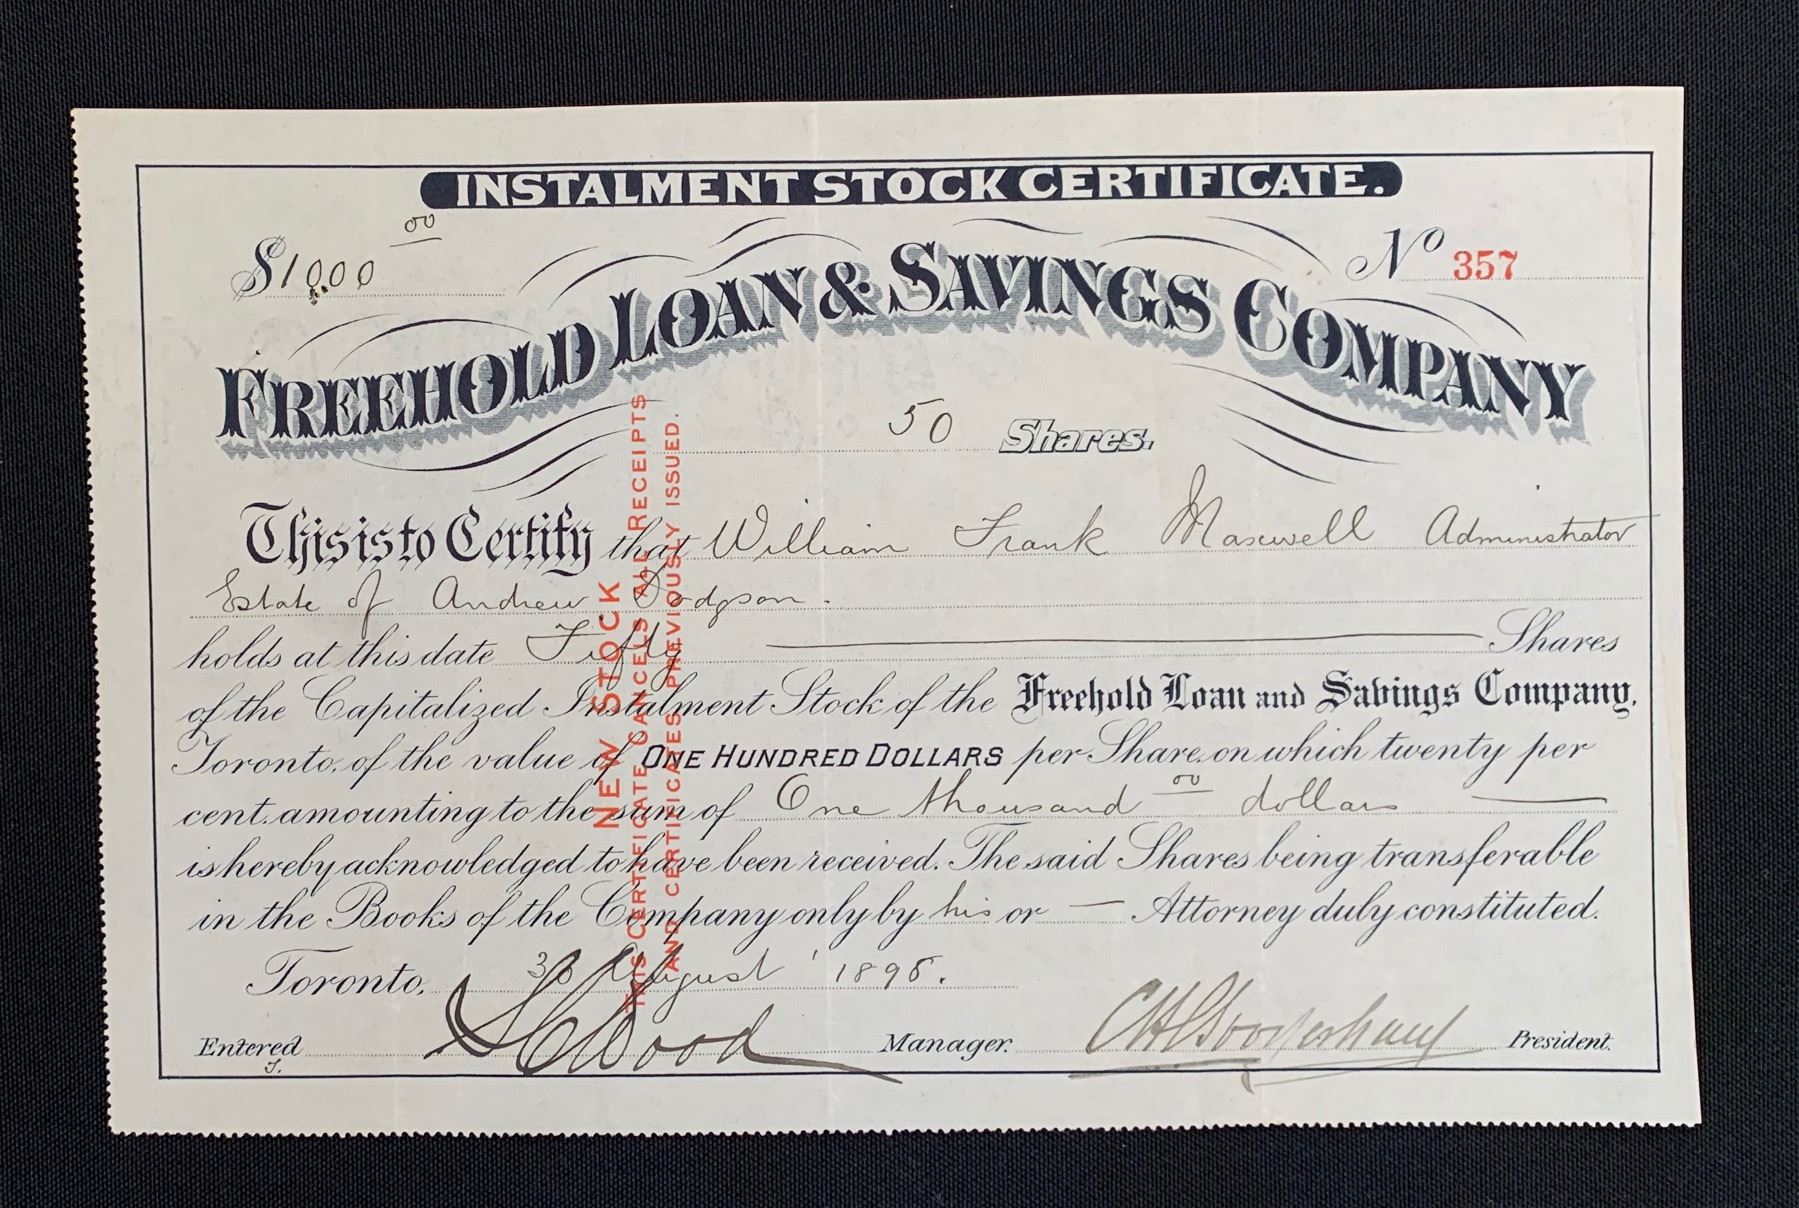 INSTALMENT STOCK CERTIFICATE.
$1000 00
Nº 357
FREEHOLD LOAN & SAVINGS COMPANY
50 Shares.
This is to Certify that William Frank Maxwell Administrator
Estate of Andrew Dodgson.
holds at this date Fifty Shares
of the Capitalized Instalment Stock of the Freehold Loan and Savings Company,
Toronto, of the value of ONE HUNDRED DOLLARS per Share, on which twenty per
cent. amounting to the sum of One thousand 00 dollars
is hereby acknowledged to have been received. The said Shares being transferable
in the Books of the Company only by his or — Attorney duly constituted.
Toronto, 30 August 1898.
Entered
S C Wood Manager.
President.
NEW STOCK
THIS CERTIFICATE CANCELS ALL RECEIPTS
AND CERTIFICATES PREVIOUSLY ISSUED.